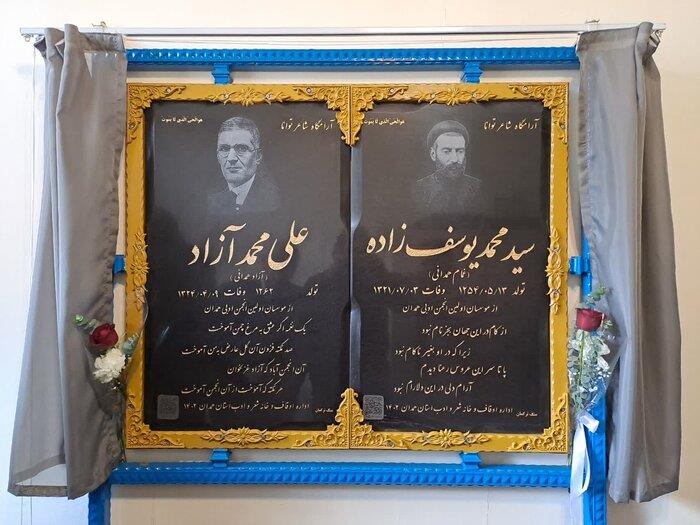 آرامگاه شاعر توانا
هوالحی الذی لا یموت
سید محمد یوسف زاده
(غمام همدانی)
تولد ۱۲۵۴/۰۵/۱۳ وفات ۱۳۲۱/۰۷/۰۳
از موسسان اولین انجمن ادبی همدان
از کام در این جهان بجز نام نبود
زیرا که در او بغیر ناکام نبود
پا تا سر این عروس رعنا دیدم
آرام دلی در این دلارام نبود
اداره اوقاف و خانه شعر و ادب استان همدان ۱۴۰۲
آرامگاه شاعر توانا
هوالحی الذی لا یموت
علی محمد آزاد
(آزاد همدانی)
تولد ۱۲۶۲ وفات ۱۳۲۴/۰۴/۰۹
از موسسان اولین انجمن ادبی همدان
یک نغمه اگر عشق به مرغ چمن آموخت
صد نکته فزون آن گل عارض به من آموخت
آن انجمن آباد که آزاد غزلخوان
هر نکته که آموخت از آن انجمن آموخت
اداره اوقاف و خانه شعر و ادب استان همدان ۱۴۰۲